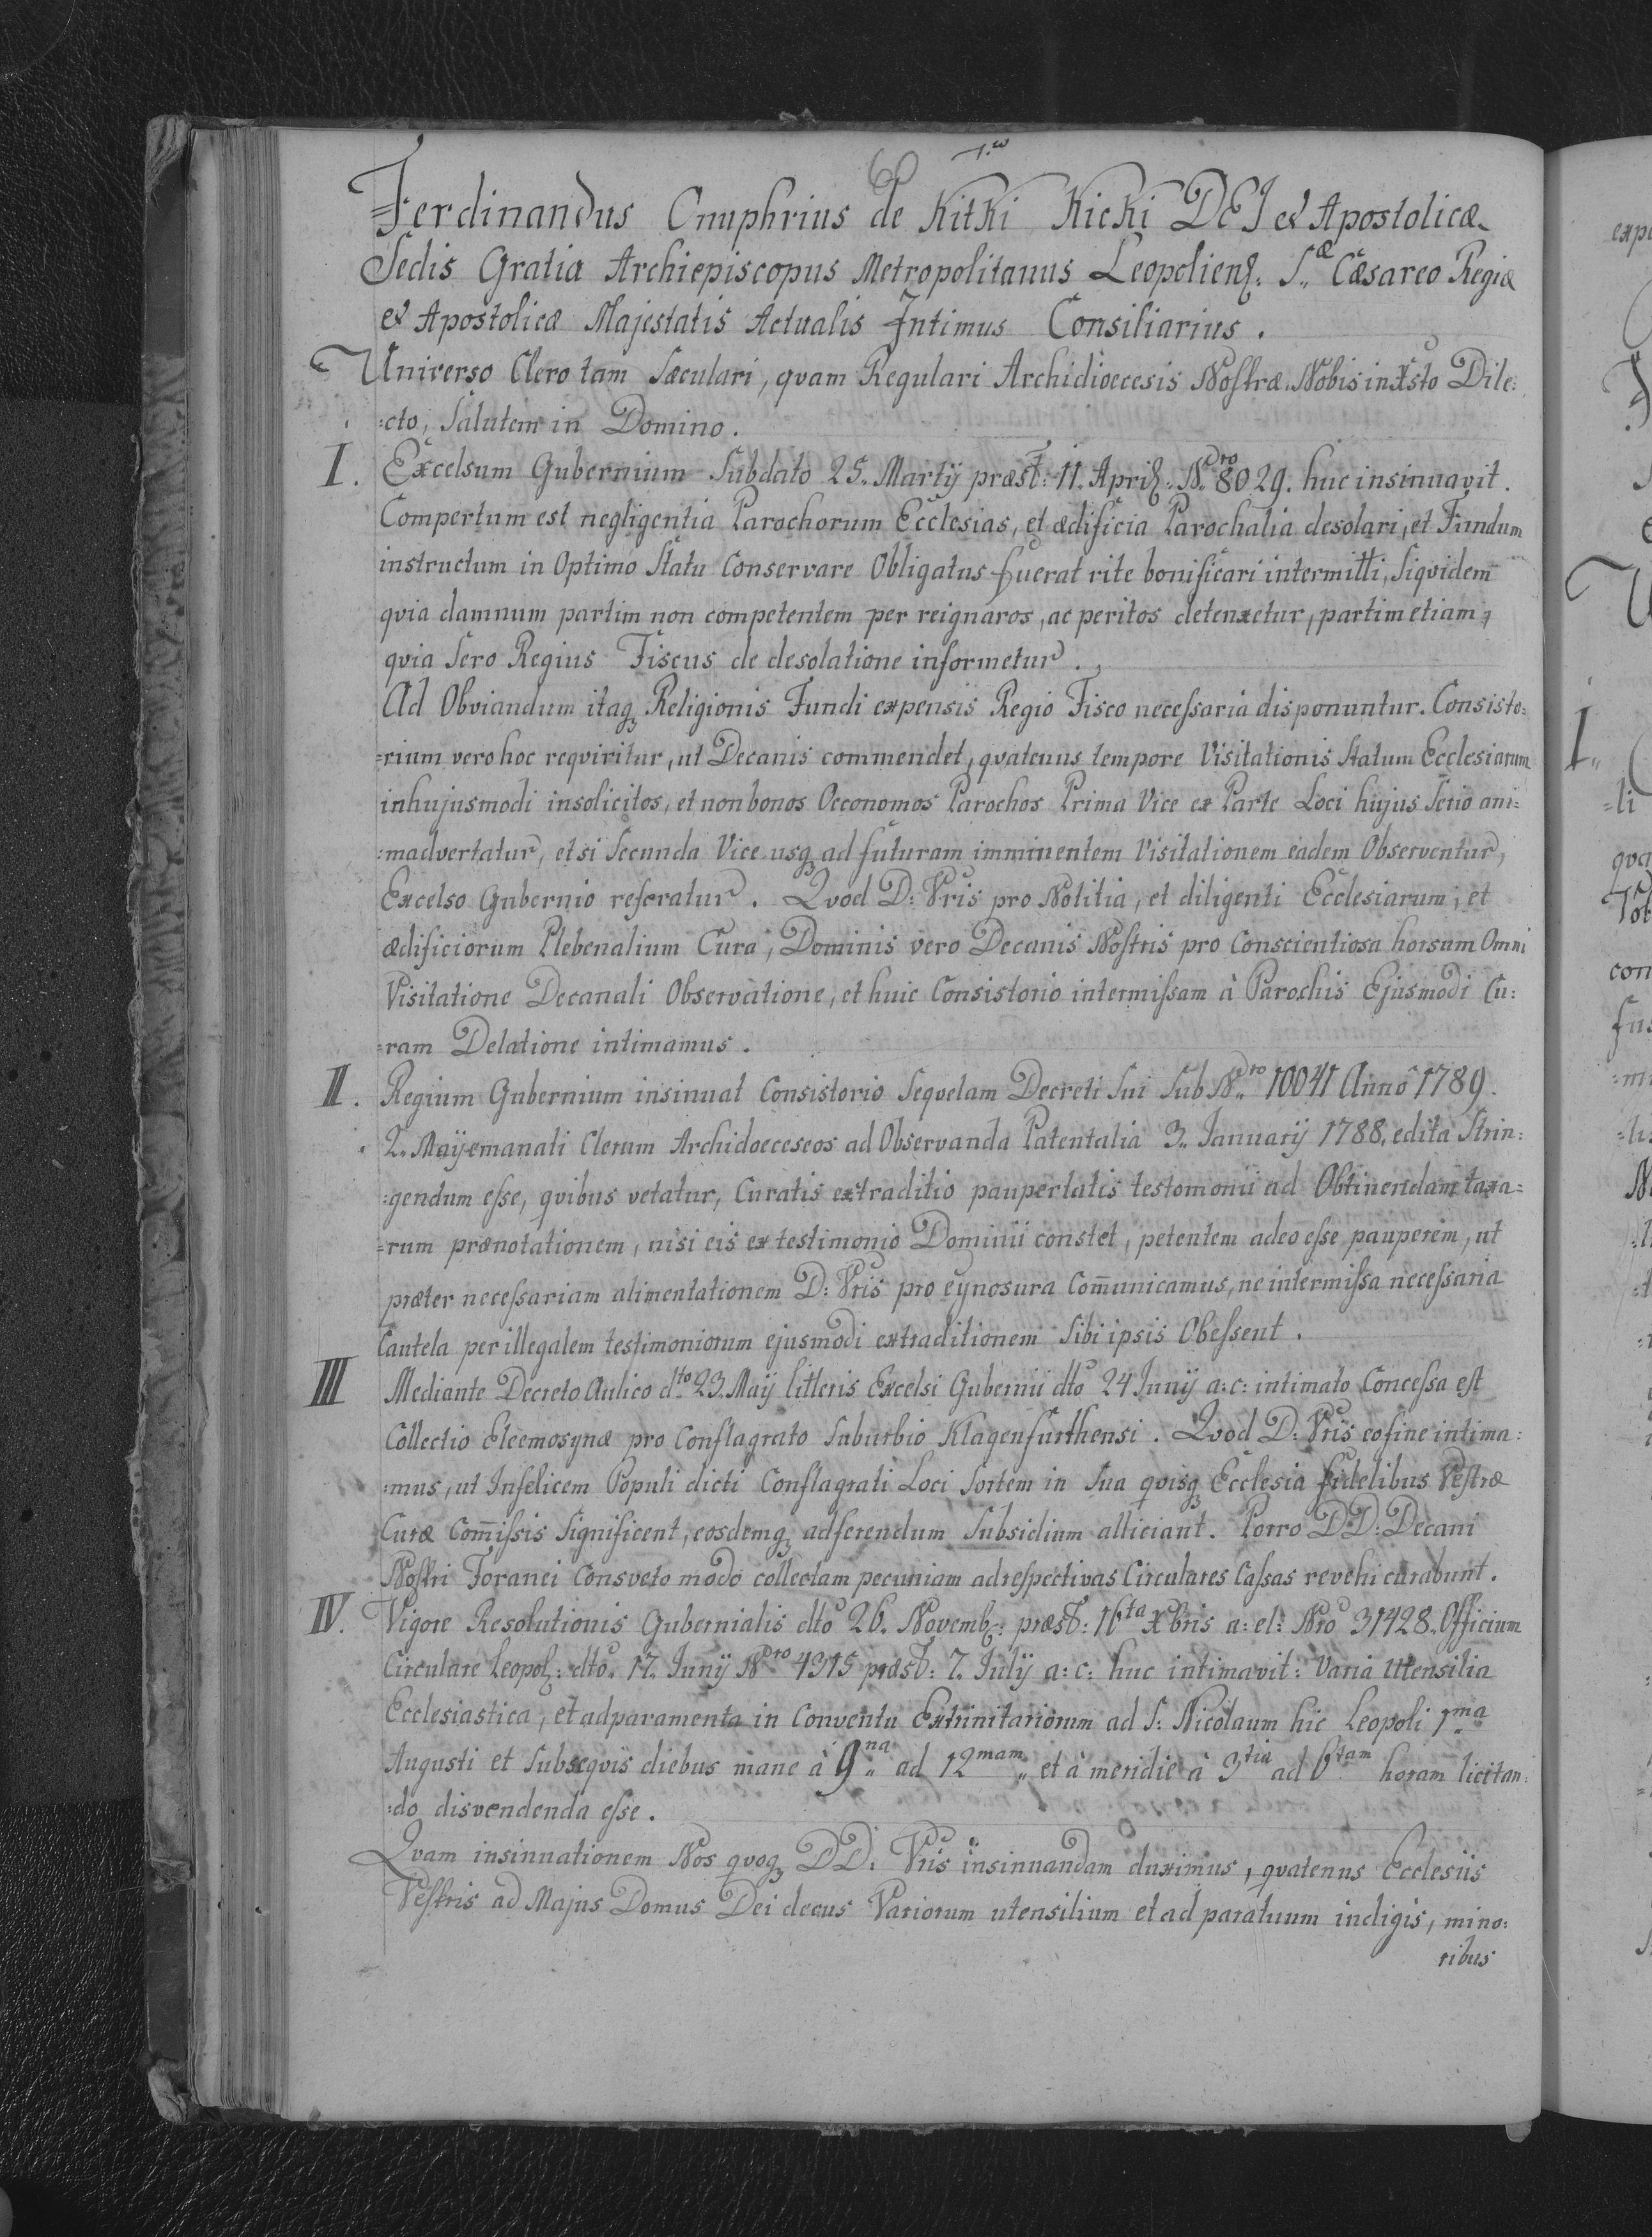 Ferdinandus Onuphrius de Kitki Kicki DEI et Apostolicæ
Sedis Gratia Archiepiscopus Metropolitanus Leopolien: S. Cæsareo Regiæ
et Apostolicæ Majestatis Actualis Intimus Consiliarius.
Universo Clero tam Sæculari, qvam Regulari Archidiœcesis Nostræ Nobis in Xsto Dile:
:cto, Salutem in Domino.
I. Excelsum Gubernium Subdato 25. Martij præst: 11. April: Nro 8029. huc insinuavit.
Compertum est negligentia Parochorum Ecclesias, et ædificia Parochalia desolari, et Fundum
instructum in Optimo Statu Conservare Obligatus fuerat rite bonificari intermitti, Siqvidem
qvia damnum partim non competentem per reignaros, ac peritos detenxetur, partim etiam,
qvia Sero Regius Fiscus de desolatione informetur.
Ad Obviandum itaq Religionis Fundi expensis Regio Fisco necessaria disponuntur. Consisto:
=rium vero hoc reqviritur, ut Decanis commendet, qvatenus tempore Visitationis Statum Ecclesiarum
inhujusmodi insolicitos, et non bonos Oeconomos Parochos Prima Vice ex Parte Loci hujus Serio ani:
:madvertatur, et si Secunda Vice usq ad futuram imminentem Visitationem eadem Observentur,
Excelso Gubernio referatur. Qvod D: Vris pro Notitia, et diligenti Ecclesiarum, et
ædificiorum Plebenalium Cura, Dominis vero Decanis Nostris pro Conscientiosa horsum Omni
Visitatione Decanali Observatione, et huic Consistorio intermissam à Parochis Ejusmodi Cu:
=ram Delatione intimamus.
II. Regium Gubernium insinuat Consistorio Seqvelam Decreti Sui Sub Nro 10041 Anno 1789.
2. Maij emanati Clerum Archidoeceseos ad Observanda Patentalia 3. Januarij 1788. edita Strin:
:gendum esse, qvibus vetatur, Curatis extraditio paupertatis testomonii ad Obtinendam taxa=
=rum prænotationem, nisi eis ex testimonio Dominii constet, petentem adeo esse pauperem, ut
præter necessariam alimentationem D: Vris pro cynosura Com̄unicamus, ne intermissa necessaria
Cautela per illegalem testimoniorum ejusmodi extraditionem Sibi ipsis Obessent.
III Mediante Decreto Aulico dto 23. Maij litteris Excelsi Gubernii dto 24 Junij a: c: intimato Concessa est
Collectio Eleemosynæ pro Conflagrato Suburbio Klagenfurthensi. Qvod D: Vris eo fine intima:
:mus, ut Infelicem Populi dicti Conflagrati Loci Sortem in Sua qvisq Ecclesia fidelibus Vestræ
Curæ Com̄issis Significent, eosdemq adferendum Subsidium alliciant. Porro DD: Decani
Nostri Foranei Consveto modo collectam pecuniam ad respectivas Circulares Cassas revehi curabunt.
IV. Vigore Resolutionis Gubernialis dto 26. Novemb: præst: 16ta Xbris a: el: Nro 31428. Officium
Circulare Leopol: dto. 17. Junij Nro 4315 præst: 7. Julij a: c: huc intimavit: Varia Utensilia
Ecclesiastica, et adparamenta in Conventu Extrinitariorum ad S: Nicolaum hic Leopoli 1ma
Augusti et Subseqvis diebus mane à 9na ad 12mam et à meridie à 3tia ad 6tam horam licitan:
:do disvendenda esse.
Qvam insinuationem Nos qvoq DD: Vris insinuandam duximus, qvatenus Ecclesiis
Vestris ad Majus Domus Dei decus Variorum utensilium et ad paratuum indigis, mino:
ribus